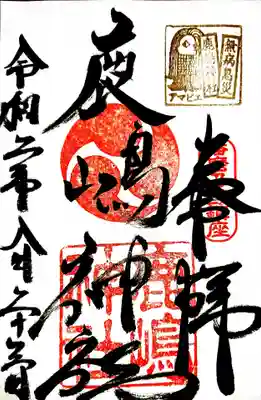 無病息災
アマビエ
奉拝
鹿嶋神社
鹿嶋神社
令和
年八月二十
日